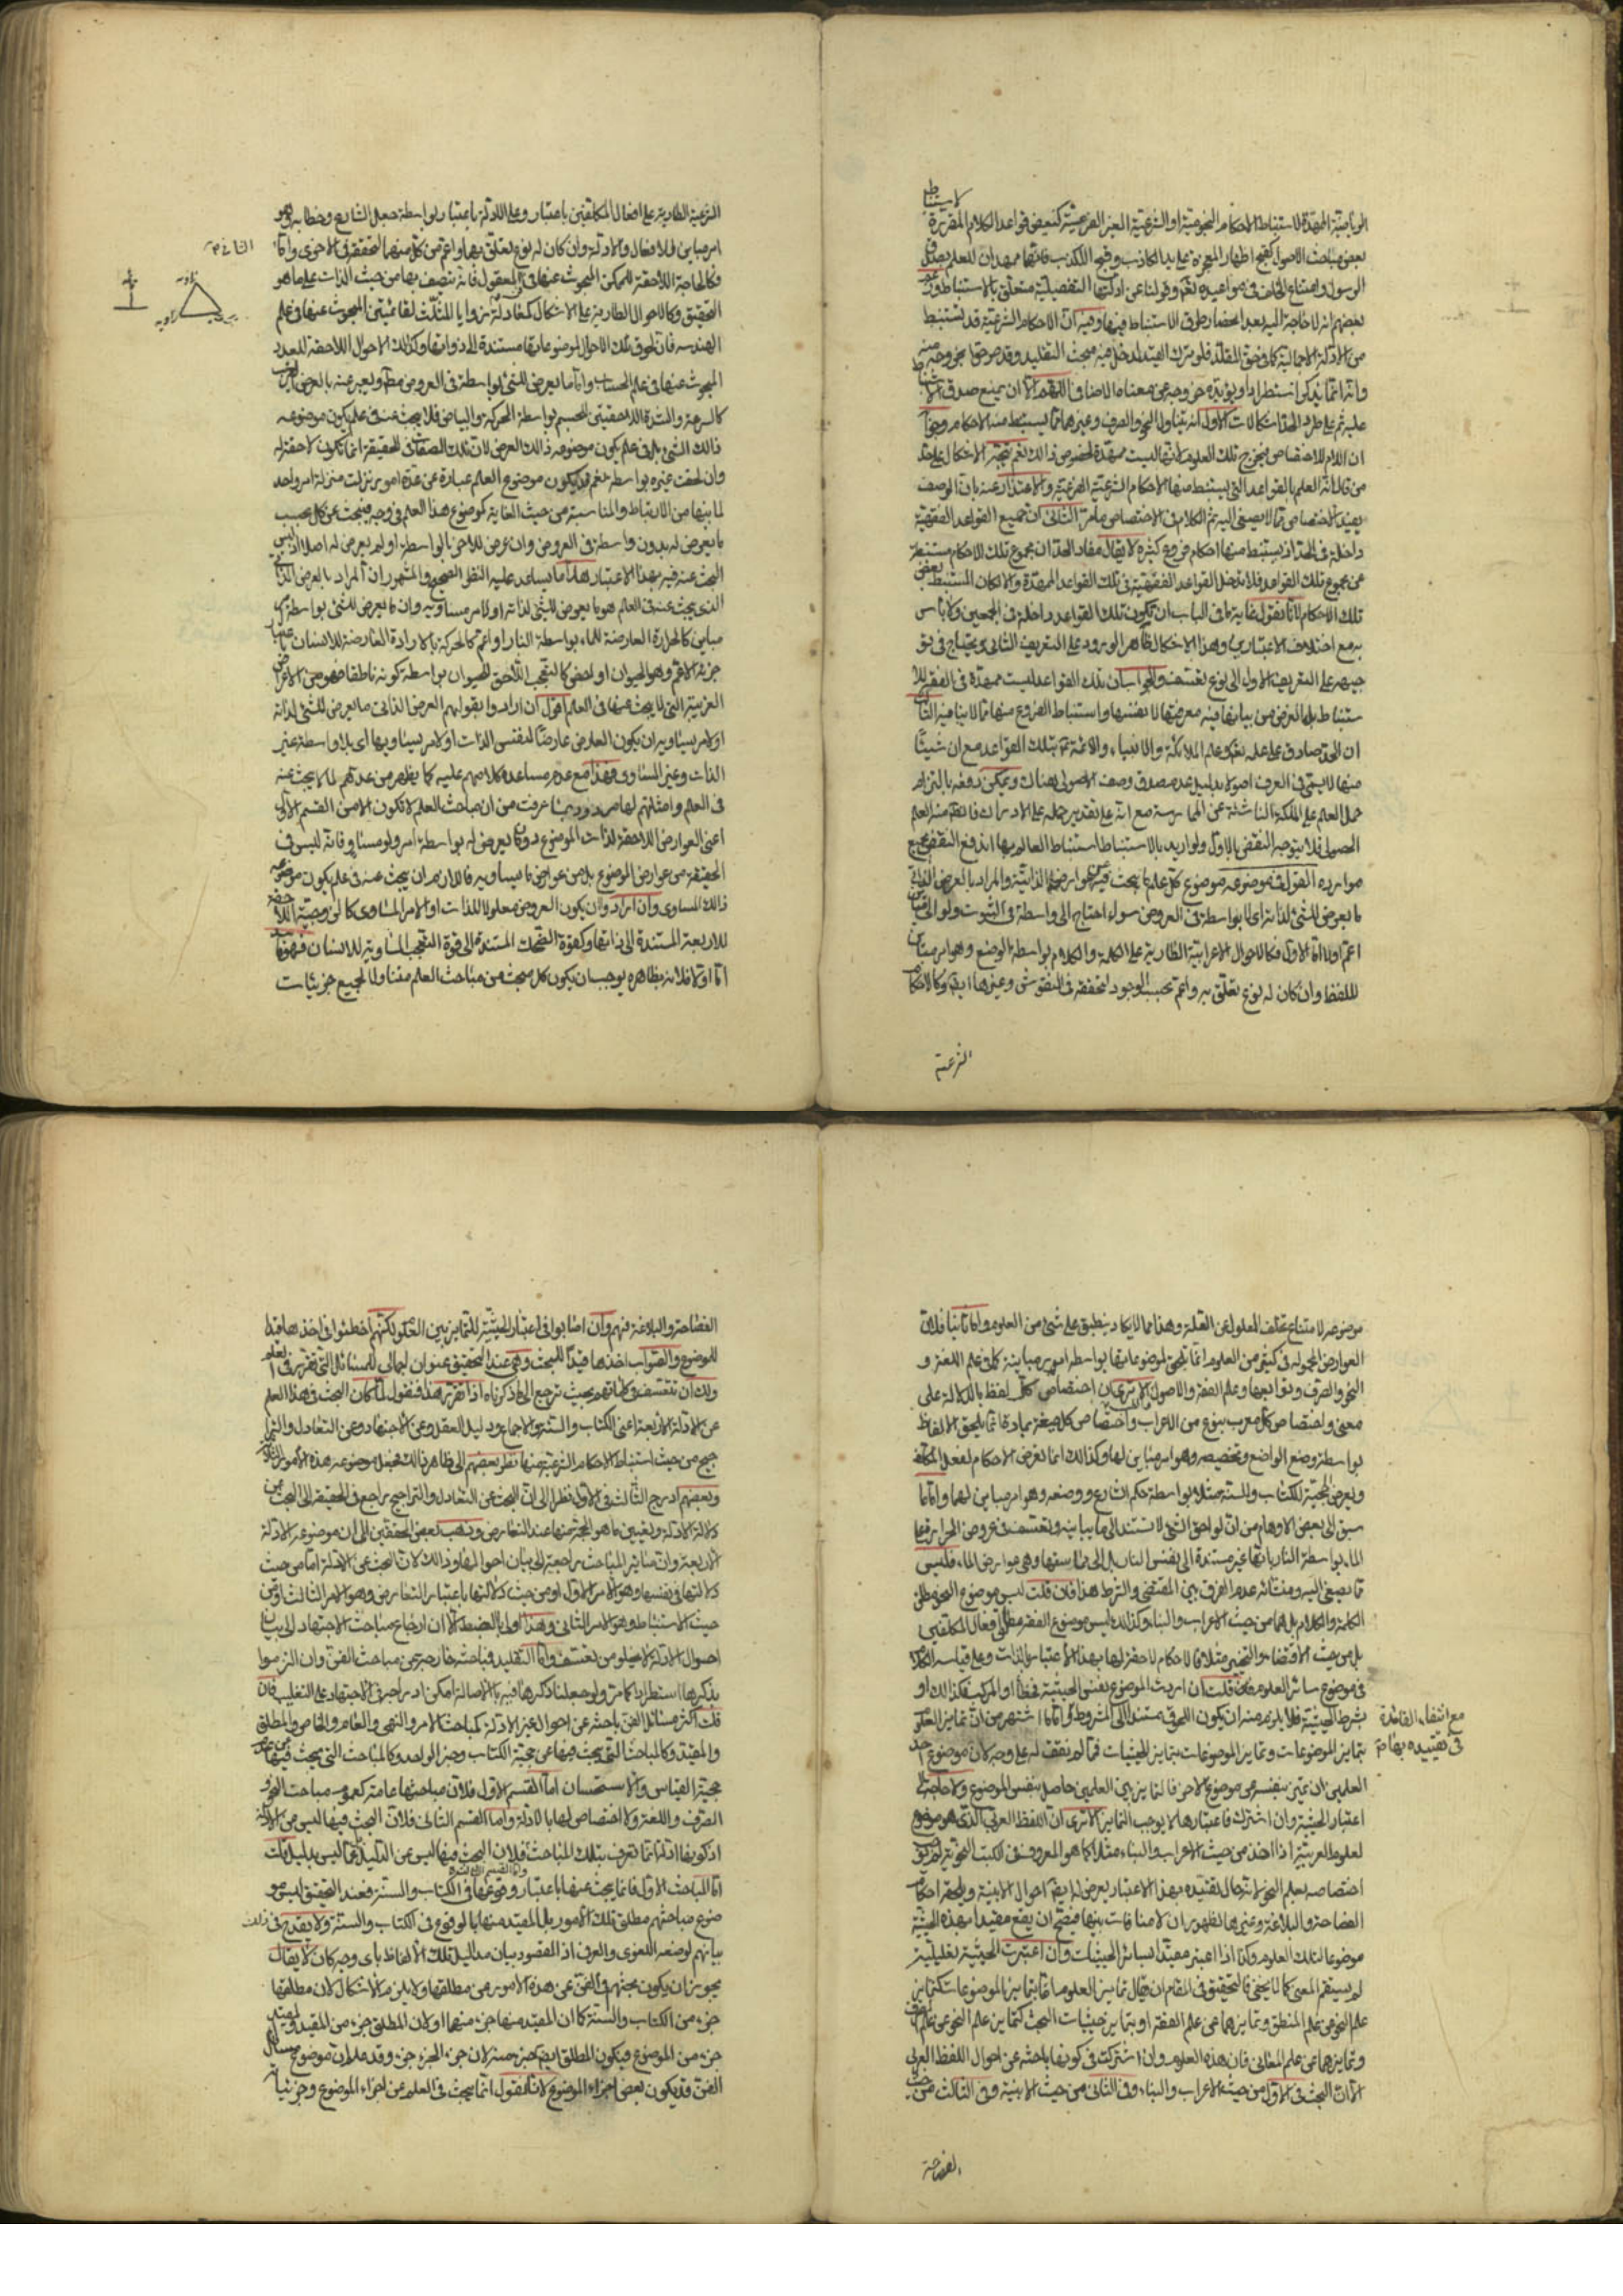 لاستنباط
الوباجتية الممهدة لاستنباط الاحكام النجومية او الشرعية الغير الفرعية كبعض قواعد الكلام المقررة
بعض مباحث الاصول كقبح اظهار المعجزة على يد الكاذب وقبح الكذب فانها ممهدان للعلم بصدق
الرسول وامتناع الخلف في مواعيده تعالى وقولنا عن ادلتها التفصيلية متعلق بالاستنباط وزعم
بعضهم انه لا حاجة اليه بعد انحصار طرق الاستنباط فيها وفيه ان الاحكام الشرعية قد تستنبط
من الادلة الاجمالية كما في حق المقلد فلو ترك القيد لدخل فيه مبحث التقليد وقد صرحوا بخروجه منه
وانه انما يذكر استطرادا ويؤيده خروجه عن معناه الاضافي اللهم الا ان يمنع صدق الاستنباط
عليه ثم على طرد الحد اشكالات الاول انه يتناول النحو والصرف وغيرهما مما يستنبط منه الاحكام ودعوى
ان اللام للاختصاص فيخرج تلك العلوم لانها ليست ممهدة لخصوص ذلك نعم يتجه الاشكال على حد
من قال انه العلم بالقواعد التي يستنبط منها الاحكام الشرعية الفرعية والاعتذار عنه بان الوصف
يفيد الاختصاص مما لا يصغى اليه ثم الكلام في الاختصاص ما مر الثاني ان جميع القواعد الفقهية
داخلة في الحد اذ يستنبط منها احكام فروع كثيرة لا يقال مفاد الحد ان مجموع تلك الاحكام مستنبطة
عن مجموع تلك القواعد فلا تدخل القواعد الفقهية في تلك القواعد الممهدة والا لكان المستنبط بعض
تلك الاحكام لانا نقول غاية ما في الباب ان تكون تلك القواعد داخلة في الجمعين ولا باس
به مع اختلاف الاعتبارين وهذا الاشكال ظاهر الورود على التعريف الثاني ويحتاج في تو
جيهه على التعريف الاول الى نوع تعسف والجواب ان تلك القواعد ليست ممهدة في الفقه للا
ستنباط بل الغرض من بيانها فيه معرفتها لا بنفسها واستنباط الفروع منها مما لا ينافيه الثالث
ان الحد صادق على علمه تعالى وعلم الملائكة والانبياء والائمة ع بتلك القواعد مع ان شيئا
منها لا يسمى في العرف اصولا بدليل عدم صدق وصف الاصولي هناك ويمكن دفعه بالتزام
حمل العلم على الملكة الناشئة عن الممارسة مع انه على تقدير حمله على الادراك فالمتقدم منه العلم
الحصولي فلا يتوجه النقض بالاول ولو اريد بالاستنباط استنباط العالم بها اندفع النقض بجميع
موارده القول في موضوعه موضوع كل علم ما يبحث فيه عن عوارضه الذاتية والمراد بالعرض الذاتي
ما يعرض للشئ لذاته اي لا بواسطة في العروض سواء احتاج الى واسطة في الثبوت ولو الى مباين
اعم او لا اما الاول فكالاحوال الاعرابية الطارية على الكلمة والكلام بواسطة الوضع وهو امر مباين
للفظ وان كان له نوع تعلق به واعم بحسب الوجود لتحققه في النقوش وغيرها ايض وكالاحكام
الشرعية
الشرعية الطارية على افعال المكلفين باعتبار وعلى الادلة باعتبار بواسطة جعل الشارع وخطابه وهو
امر مباين للافعال والادلة وان كان له نوع تعلق بها واعم من كل منهما لتحققه في الاخرى واما الثاني م
فكالحاجة اللاحقة للممكن المبحوث عنها في المعقول فانه يتصف بها من حيث الذات على ما هو
التحقيق وكالاحوال الطارية على الاشكال كمعادلة زوايا المثلث لقائمتين المبحوث عنها في علم
الهندسة فان لحوق تلك الاحوال لموضوعاتها مستندة الى ذواتها وكذلك الاحوال اللاحقة للعدد
المبحوث عنها في علم الحساب واما ما يعرض للشئ بواسطة في العروض مطلقا ويعبر عنه بالعرض الغريب
كالسرعة والشدة اللاحقتين للجسم بواسطة الحركة والبياض فلا يبحث عنه في علم يكون موضوعه
ذلك الشئ بل في علم يكون موضوعه ذلك العرض لان تلك الصفات في الحقيقة انما تكون لاحقة له
وان لحقت غيره بواسطة نعم قد يكون موضوع العلم عبارة عن عدة امور نزلت منزلة امر واحد
لما بينها من الارتباط والمناسبة من حيث الغاية كموضوع هذا العلم في وجه فيبحث عن كل بحسب
ما يعرض له بدون واسطة في العروض وان عرض للاخر بالواسطة او لم يعرض له اصلا اذ ليس
البحث عنه فيه بهذا الاعتبار هذا ما يساعد عليه النظر الصحيح والمشهور ان المراد بالعرض الذاتي
الذي يبحث عنه في العلم هو ما يعرض للشئ لذاته او لامر مساويه وان ما يعرض للشئ بواسطة امر
مباين كالحرارة العارضة للماء بواسطة النار او اعم كالحركة بالارادة العارضة للانسان بواسطة
جزئه الاعم وهو الحيوان او اخص كالتعجب اللاحق للحيوان بواسطة كونه ناطقا فهو من الاعراض
الغريبة التي لا يبحث عنها في العلم اقول ان ارادوا بقولهم العرض الذاتي ما يعرض للشئ لذاته
او لامر يساويه ان يكون العارض عارضا لنفس الذات او لامر يساويها اي بلا واسطة غير
الذات وغير المساوي فهذا مع عدم مساعدة كلامهم عليه كما يظهر من عدهم لما لا يبحث عنه
في العلم وامثلتهم لها مردود بما عرفت من ان مباحث العلم لا تكون الا من القسم الاول
اعني العوارض اللاحقة لذات الموضوع دون ما يعرض له بواسطة امر ولو مساو فانه ليس في
الحقيقة من عوارض الموضوع بل من عوارض ما يساويه فاللازم ان يبحث عنه في علم يكون موضوعه
ذلك المساوي وان اراد وان يكون العروض معلولا للذات او الامر المساوي كالزوجية اللاحقة
للاربعة المستندة الى ذاتها وكقوة الضحك المستندة الى قوة التعجب المساوية للانسان فهو فاسد
اما اولا فلانه بظاهره يوجب ان يكون كل مبحث من مباحث العلم متناولا لجميع جزئيات
زاوية
زاوية
موضوعه لامتناع تخلف المعلول عن العلة وهذا مما لا يكاد ينطبق على شئ من العلوم واما ثانيا فلان
العوارض المحمولة في كثير من العلوم انما تلحق لموضوعاتها بواسطة امور مباينة كما في علم اللغة و
النحو والصرف وتوابعها وعلم الفقه والاصول الا ترى ان اختصاص كل لفظ بالدلالة على
معنى واختصاص كل معرب بنوع من الاعراب واختصاص كل صيغة بمادة انما يلحق الالفاظ
بواسطة وضع الواضع وتخصيصه وهو امر مباين لها وكذلك انما تعرض الاحكام لفعل المكلف
ويعرض الحجية للكتاب والسنة مثلا بواسطة حكم الشارع ووضعه وهو امر مباين لهما واما ما
سبق الى بعض الاوهام من ان لواحق الشئ لا تستند الى ما يباينه وتعسف في عروض الحرارة على
الماء بواسطة النار بانها غير مستندة الى نفس النار بل الى مماستها وهي من عوارض الماء فليس
مما يصغى اليه ومنشائه عدم الفرق بين المقتضي والشرط هذا فان قلت ليس موضوع النحو مطلق
الكلمة والكلام بل هما من حيث الاعراب والبناء وكذلك ليس موضوع الفقه مطلق افعال المكلفين
بل من حيث الاقتضاء والتخيير مثلا فالاحكام لاحقة لها بهذا الاعتبار بالذات وعلى قياسه الكلام
في موضوع سائر العلوم قلت ان اريد الموضوع بنفس الحيثية فخطأ او المركب فكذلك او
بشرط الحيثية فلا يلزم منه ان يكون اللحوق مستندا الى المشروط واما ما اشتهر من ان تمايز العلوم
بتمايز الموضوعات وتمايز الموضوعات بتمايز الحيثيات فمما لم نقف له على وجه لان موضوع احد
العلمين ان تميز بنفسه عن موضوع الاخر فالتمايز بين العلمين حاصل بنفس الموضوع ولا حاجة الى
اعتبار الحيثية وان اشترك فاعتبارها لا يوجب التمايز الا ترى ان اللفظ العربي الذي هو موضوع
لعلوم العربية اذا اخذ من حيث الاعراب والبناء مثلا كما هو المعروف في الكتب النحوية لم يوجب
اختصاصه بعلم النحو لانه حال تقييده بهذا الاعتبار يعرض له ايض احوال الابنية ويلحقه احكام
الفصاحة والبلاغة وغيرها لظهور ان لا منافات بينها فيصح ان يقع مقيدا بهذه الحيثية
موضوعا لتلك العلوم وكذا اذا اعتبر مقيدا بسائر الحيثيات وان اعتبرت الحيثية تعليلية
لم يستقم المعنى كما لا يخفى فالتحقيق في المقام ان يقال تمايز العلوم اما بتمايز الموضوعات كتمايز
علم النحو عن علم المنطق وتمايزهما عن علم الفقه او بتمايز حيثيات البحث كتمايز علم النحو عن علم الصرف
وتمايزهما عن علم المعاني فان هذه العلوم وان اشتركت في كونها باحثة عن احوال اللفظ العربي
الا ان البحث في الاول من حيث الاعراب والبناء وفي الثاني من حيث الابنية وفي الثالث من حيث
مع انتفاء الفائدة
في تقييده بها م
الفصاحة
الفصاحة والبلاغة فهم وان اصابوا في اعتبار الحيثية للتمايز بين العلوم لكنهم اخطئوا في اخذها قيدا
للموضوع والصواب اخذها قيدا للبحث وهي عند التحقيق عنوان اجمالي للمسائل التي تقرر في العلم
ولك ان تتعسف في كلماتهم بحيث ترجع الى ما ذكرناه اذا تقرر هذا فنقول لما كان البحث في هذا العلم
عن الادلة الاربعة اعني الكتاب والسنة والاجماع ودليل العقل وعن الاجتهاد وعن التعادل والترا
جيح من حيث استنباط الاحكام الشرعية منها نظر بعضهم الى ظاهر ذلك فجعل موضوعه هذه الامور الثلاثة
وبعضهم ادرج الثالث في الاول نظرا الى ان البحث عن التعادل والتراجيح راجع في الحقيقة الى البحث عن
دلالة الادلة وتعيين ما هو الحجة منها عند التعارض وذهب بعض المحققين الى ان موضوعه الادلة
الاربعة وان سائر المباحث راجعة الى بيان احوالها وذلك لان البحث عن الادلة اما من حيث
دلالتها في نفسها وهو الامر الاول او من حيث دلالتها باعتبار التعارض وهو الامر الثالث او من
حيث الاستنباط وهو الامر الثاني وهذا اولى بالضبط الا ان ارجاع مباحث الاجتهاد الى بيان
احوال الادلة لا يخلو من تعسف واما التقليد فمباحثه خارجة عن مباحث الفن وان التزموا
بذكرها استطرادا كما مر ولو جعلنا ذكرها فيه بالاصالة امكن ادراجه في الاجتهاد على التغليب فان
قلت اكثر مسائل الفن باحثة عن احوال غير الادلة كمباحث الامر والنهي والعام والخاص والمطلق
والمقيد وكالمباحث التي يبحث فيها عن حجية الكتاب وخبر الواحد وكالمباحث التي يبحث فيها عن عدم
حجية القياس والاستحسان اما القسم الاول فلان مباحثها عامة كعموم مباحث النحو و
الصرف واللغة ولا اختصاص لها بالادلة واما القسم الثاني فلان البحث فيها ليس عن الادلة
اذ كونها ادلة انما تعرف بتلك المباحث فلان البحث فيها ليس عن الدليل بل عما ليس بدليل قلت
واما القسم الثالث
اما المباحث الاول فانما يبحث عنها باعتبار وقوعها في الكتاب والسنة فعند التحقيق ليس مو
ضوع مباحثهم مطلق تلك الامور بل المقيد منها بالوقوع في الكتاب والسنة ولا يقدح في ذلك
بيانهم لوضعه اللغوي والعرفي اذ المقصود بيان مداليل تلك الالفاظ باي وجه كان لا يقال
يجوز ان يكون بحثهم في الفن عن هذه الامور عن مطلقها ولا يلزم الاشكال لان مطلقها
جزء من الكتاب والسنة كما ان المقيد منها جزء منهما اولان المطلق جزء من المقيد والمقيد
جزء من الموضوع فيكون المطلق ايض جزء منه لان جزء الجزء جزء وقد علم ان موضوع مسائل
الفن قد يكون بعض اجزاء الموضوع لانا نقول انما يبحث في العلوم عن اجزاء الموضوع وجزئياته